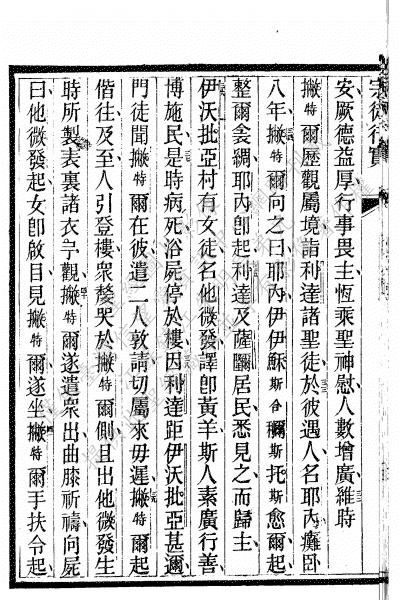 宗徒行實
安厥德益厚行事畏主恆乘聖神慰人數增廣維時
撇特爾歷觀屬境詣利達諸聖徒於彼遇人名耶內癱臥
八年撇特爾向之曰耶內伊伊穌斯合爾斯托斯愈爾起
整爾衾裯耶內卽起利達及薩居民悉見之而歸主
伊沃批亞村有女徒名他微發譯卽黃羊斯人素廣行善
博施民是時病死浴屍停於樓因利達距伊沃批亞甚邇
門徒聞撇特爾在彼遣二人敦請切屬來毋遲撇特爾起
偕往及至人引登樓衆嫠哭於撇特爾側且出他微發生
時所製表裏諸衣予觀撇特爾遂遣衆出曲膝祈禱向屍
曰他微發起女卽啟目見撇特爾遂坐撇特爾手扶令起